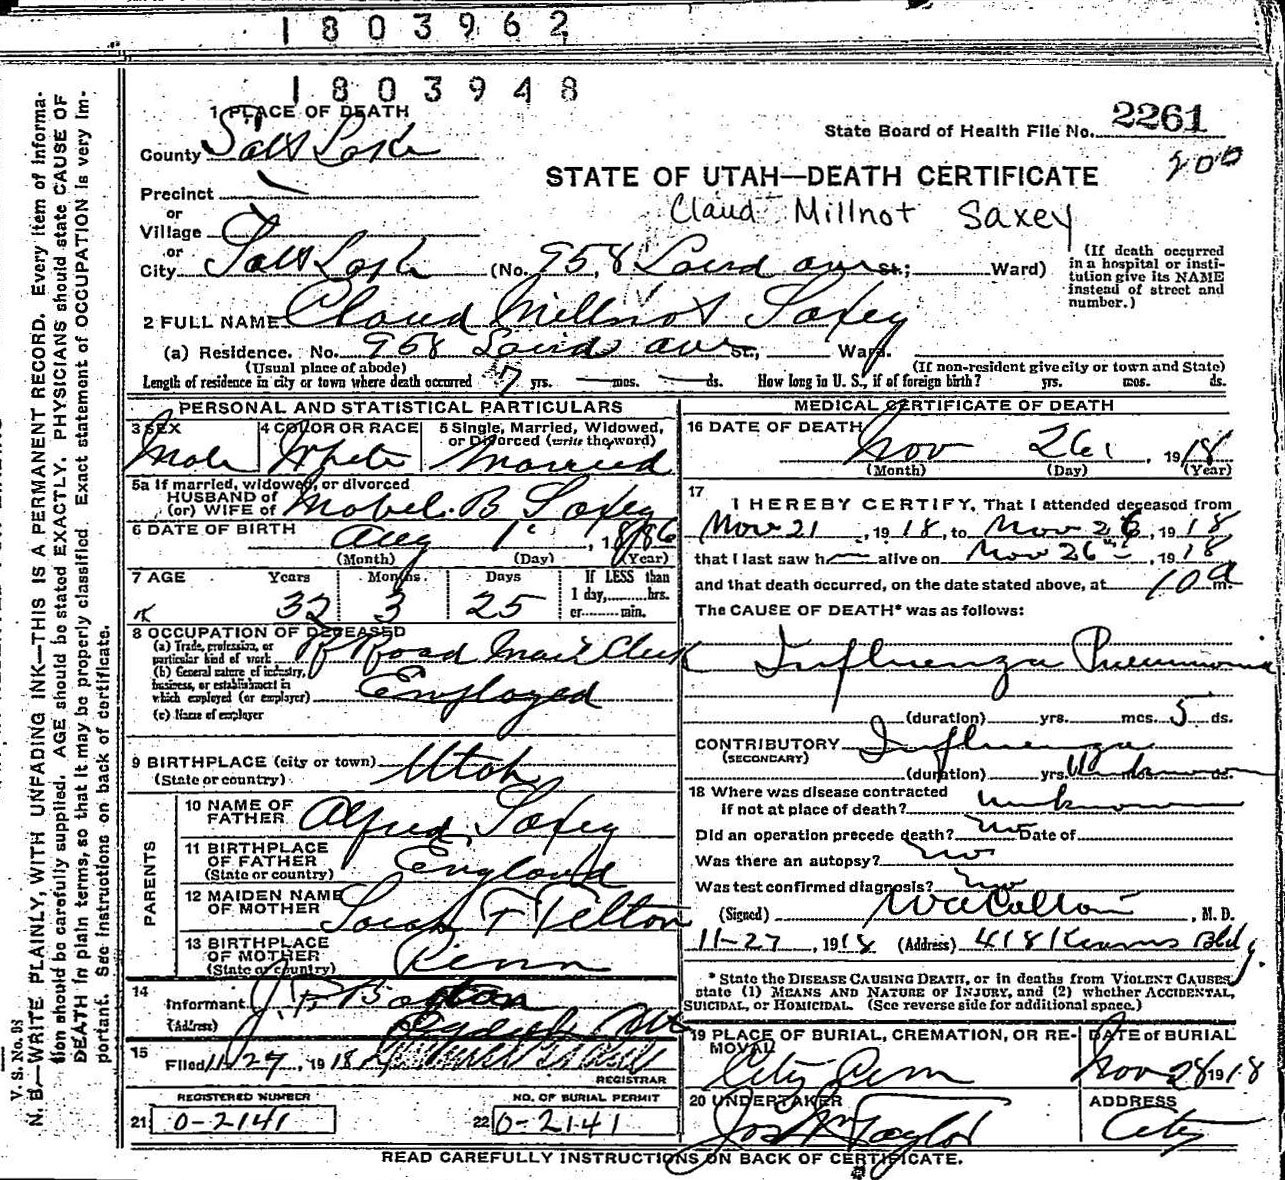 1803962
1803948
1 PLACE OF DEATH
State Board of Health File No. 2261
County Salt Lake
900
STATE OF UTAH—DEATH CERTIFICATE
Precinct
Claud Millnot Saxey
or
Village
or
City Salt Lake (No. 958 Laird ave St.; Ward)
(If death occurred in a hospital or institution give its NAME instead of street and number.)
2 FULL NAME Claud Millnot Saxey
(a) Residence. No. 958 Laird ave St., Ward.
(Usual place of abode) (If non-resident give city or town and State)
Length of residence in city or town where death occurred 7 yrs. — mos. — ds. How long in U. S., if of foreign birth? yrs. mos. ds.
PERSONAL AND STATISTICAL PARTICULARS
3 SEX Male
4 COLOR OR RACE White
5 Single, Married, Widowed, or Divorced (write the word) Married
5a If married, widowed, or divorced
HUSBAND of
(or) WIFE of Mabel B Saxey
6 DATE OF BIRTH Aug 1 , 1886
(Month) (Day) (Year)
7 AGE Years Months Days If LESS than
1 day, hrs.
or min.
32 3 25
8 OCCUPATION OF DECEASED
(a) Trade, profession, or particular kind of work R Road Mail Clerk
(b) General nature of industry, business, or establishment in which employed (or employer) Employed
(c) Name of employer
9 BIRTHPLACE (city or town) Utah
(State or country)
PARENTS
10 NAME OF FATHER Alfred Saxey
11 BIRTHPLACE OF FATHER England
(State or country)
12 MAIDEN NAME OF MOTHER Sarah F Telton
13 BIRTHPLACE OF MOTHER Penn
(State or country)
14
Informant J. F.
(Address) Ave
15
Filed 11-27, 1918
REGISTRAR
REGISTERED NUMBER NO. OF BURIAL PERMIT
21 0-2141 22 0-2141
MEDICAL CERTIFICATE OF DEATH
16 DATE OF DEATH Nov 26, 1918
(Month) (Day) (Year)
17
I HEREBY CERTIFY, That I attended deceased from
Nov 21, 1918, to Nov 26, 1918
that I last saw h— alive on Nov 26th, 1918
and that death occurred, on the date stated above, at 10 a m.
The CAUSE OF DEATH* was as follows:
Influenza Pneumonia
(duration) yrs. mos. 5 ds.
CONTRIBUTORY Influenza
(SECONDARY)
(duration) yrs. Unknown ds.
18 Where was disease contracted
if not at place of death? unknown
Did an operation precede death? no Date of
Was there an autopsy? no
Was test confirmed diagnosis? no
(Signed) , M. D.
11-27, 1918 (Address) 418 Kearns Bldg.
* State the DISEASE CAUSING DEATH, or in deaths from VIOLENT CAUSES,
state (1) MEANS AND NATURE OF INJURY, and (2) whether ACCIDENTAL,
SUICIDAL, or HOMICIDAL. (See reverse side for additional space.)
19 PLACE OF BURIAL, CREMATION, OR REMOVAL City Cem
DATE of BURIAL Nov 28 1918
20 UNDERTAKER Jos Wm Taylor
ADDRESS City
READ CAREFULLY INSTRUCTIONS ON BACK OF CERTIFICATE.
V. S. No. 98
N. B.—WRITE PLAINLY, WITH UNFADING INK—THIS IS A PERMANENT RECORD. Every item of informa-
tion should be carefully supplied. AGE should be stated EXACTLY. PHYSICIANS should state CAUSE OF
DEATH in plain terms, so that it may be properly classified. Exact statement of OCCUPATION is very im-
portant. See instructions on back of certificate.